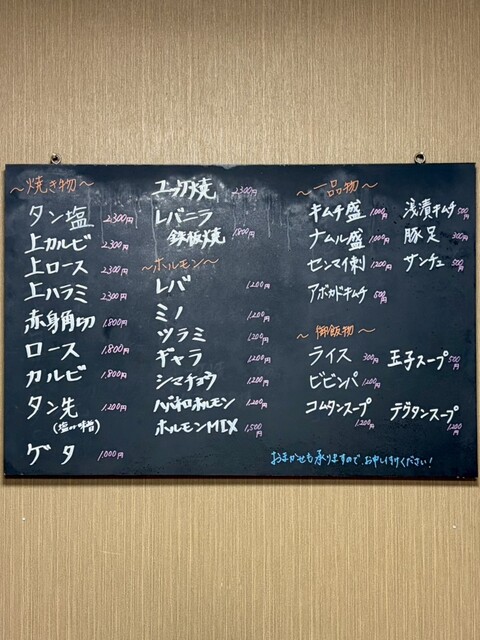 ~焼き物~
タン塩 2,300円
上カルビ 2,300円
上ロース 2,300円
上ハラミ 2,300円
赤身角切 1,800円
ロース 1,800円
カルビ 1,800円
タン先 1,200円
(塩or味噌)
ゲタ 1,000円
ユッケ焼 2,300円
レバニラ
鉄板焼 1,800円
~ホルモン~
レバ 1,200円
ミノ 1,200円
ツラミ 1,200円
ギャラ 1,200円
シマチョウ 1,200円
ハバネロホルモン 1,200円
ホルモンMIX 1,500円
~一品物~
キムチ盛 1,000円
ナムル盛 1,000円
センマイ刺 1,200円
アボカドキムチ 600円
浅漬キムチ 500円
豚足 300円
サンチュ 500円
~御飯物~
ライス 300円
ビビンバ 1,200円
コムタンスープ 1,200円
玉子スープ 500円
テグタンスープ 1,200円
おまかせも承りますので、お申し付けください!